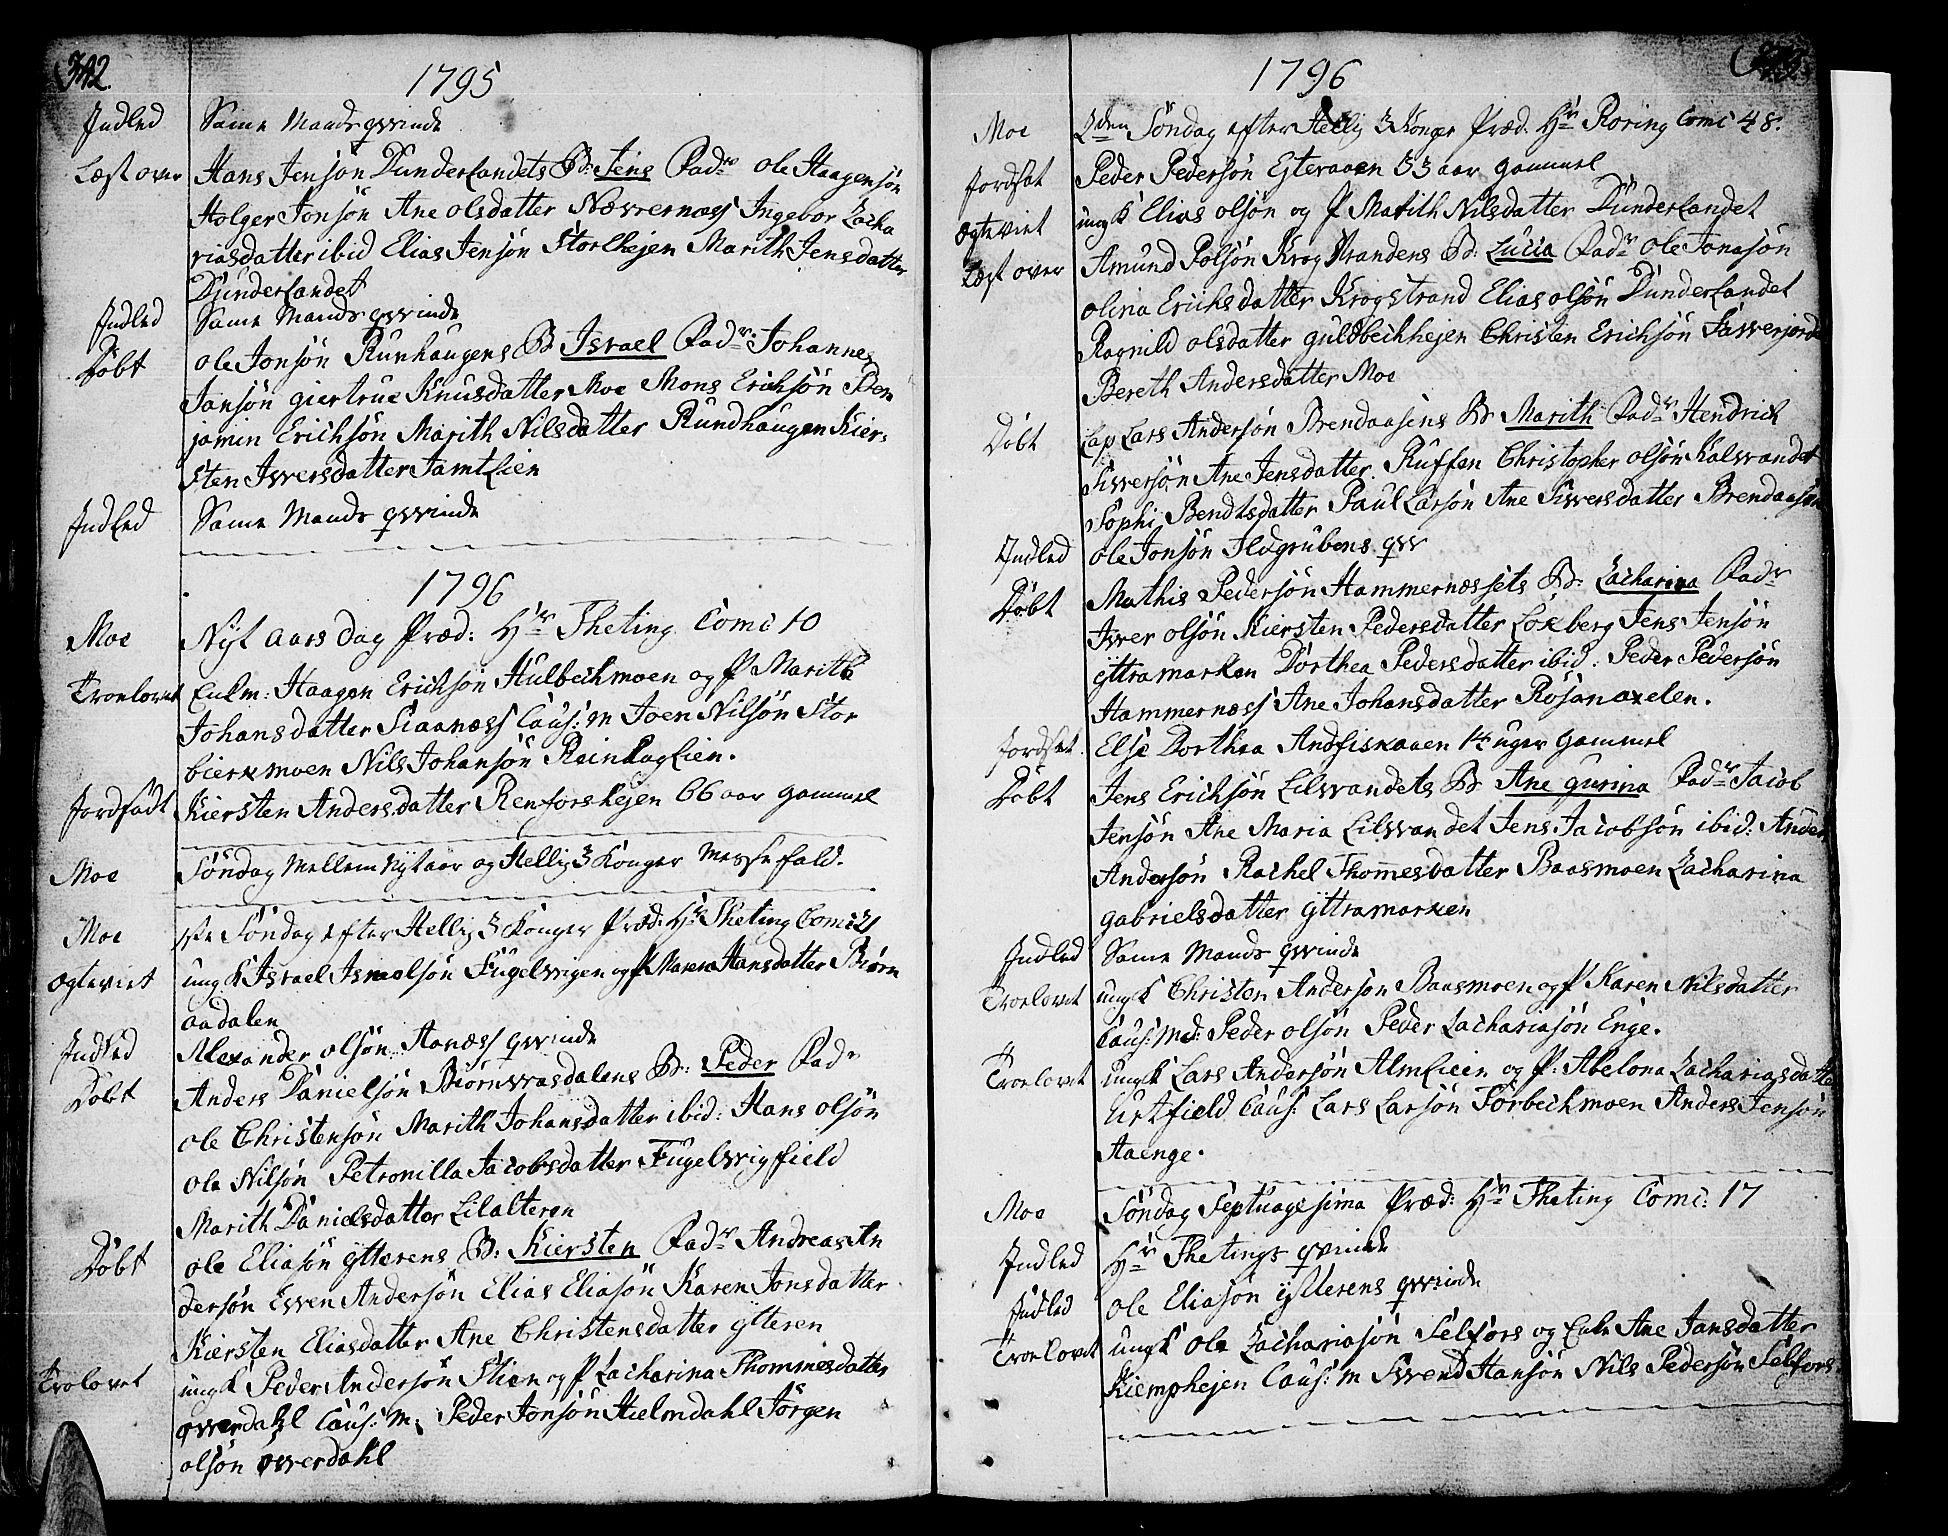 342.
1795
Indled Same Mands qvinde
Læst over Hans Jensøn Dunderlandets B: Jens Fadr Ole Haagensøn
Holger Jonsøn Ane olsdatter Næverness Ingebor Zacha
riasdatter ibid Elias Jensøn Storlhejen Marith Jensdatter
Dunderlandet
Indled Same Mands qvinde
Døbt ole Jonsøn Runhaugens B Israel Fadr Johannes
Jansøn giertrue Knusdatter Moe Mons Erichsøn Ben
jamin Erichsøn Marith Nilsdatter Rundhaugen Kier-
sten Iversdatter Jamtlien
Indled Same Mands qvinde
1796
Moe Nyt aars dag Præd: Hr Theting Comc 10
Troelovet Enkm: Haagen Erichsøn Hulbechmoen og P Marith
Johansdatter Siaaness Caus: m Joen Nilsøn Stor
bierkmoen Nils Johansøn Reinhaglien.
Jordfødt Kiersten Andersdatter Renforshejen 66 aar gammel
Moe Søndag Mellem Nytaar og Hellig 3 Konger Messefald.
Moe 1ste Søndag efter Hellig 3 Konger Præd: Hr Theting Comc 21
Ogteviet ung K Israel Israelsøn Fugelvigen og P Maren Hansdatter Biørn
aadalen
Indled Alexander olsøn Aaness qvinde
Døbt Anders Danielsøn Biørnvasdalens B: Peder Fadr
ole Christensøn Marith Johansdatter ibid: Hans olsøn
ole Nilsøn Petronilla Jacobsdatter Fugelvigfield
Marith Danielsdatter Lilalteren
Døbt ole Eliasøn ytterens B: Kiersten Fadr Andreas An
dersøn Even Andersøn Elias Eliasøn Karen Jonsdatter
Kiersten Eliasdatter Ane Christensdatter ytteren
Trolovet ungK Peder Andersøn Slien og P Zacharina Thommesdatter
qverdahl Caus: M: Peder Jonsøn Hielmdahl Jørgen
olsøn øverdahl
1796
Moe 2den Søndag efter Hellig 3 Konger Præd. Hr Røring Comc 48.
Jordsat Peder Pedersøn Ejteraaen 53 aar gammel
Ægteviet ungK Elias olsøn og P Marith Nilsdatter Dunderlandet
Læst over Amund Polsøn Krogstrandens B: Lucia Fadr ole Jonasøn
olina Erichsdatter Krogstrand Elias olsøn Dunderlandet
Ragnild olsdatter guldbechhejen Christen Erichsøn Saverjord
Bereth Andersdatter Moe
Døbt Lap Lars Andersøn Brendaasens B Marith Fadr Hendrich
Siversøn Ane Jensdatter Ruffen Christopher olsøn Kalvandet
Sophi Bendtsdatter Paul Larsøn Ane Siversdatter Brendaasen
Indled ole Jonsøn Ildgrubens qv
Døbt Mathis Pedersøn Hammernæssets B: Zacharina Fadr
Iver olsøn Kiersten Pedersdatter Loxberg Jens Jensøn
yttramarken Dorthea Pedersdatter ibid: Peder Pedersøn
Hammerness Ane Johansdatter Røsanaxelen.
Jordsat Else Dorthea Andfiskaaen 14 uger gammel
Døbt Jens Erichsøn Lilvandets B Ane gurina Fadr Jacob
Jensøn Ane Maria Lilvandet Jens Jacobsøn ibid: Anders
Andersøn Rachel Thommesdatter Baasmoen Zacharina
gabrielsdatter yttramarken
Indled Same Mands qvinde
Troelovet ungK Christen Andersøn Baasmoen og P Karen Nilsdatter
Caus: Md: Peder olsøn Peder Zachariasøn Enge.
Troelovet ungK Lars Andersøn Almlieen og P: Abelona Zachariasdatter
Urtfield Caus: Lars Larsøn Torbechmoen Anders Jensøn
Aaenge.
Moe Søndag Septuagesima Præd: Hr Theting Comc: 17
Indled Hr Thetings qvinde
Indled Ole Eliasøn ytterens qvinde
Troelovet ungK ole Zachariasøn Selfors og Enk Ane Jansdatter
Kiemphejen Caus: M Svend Hansøn Nils Pedersøn Selfors